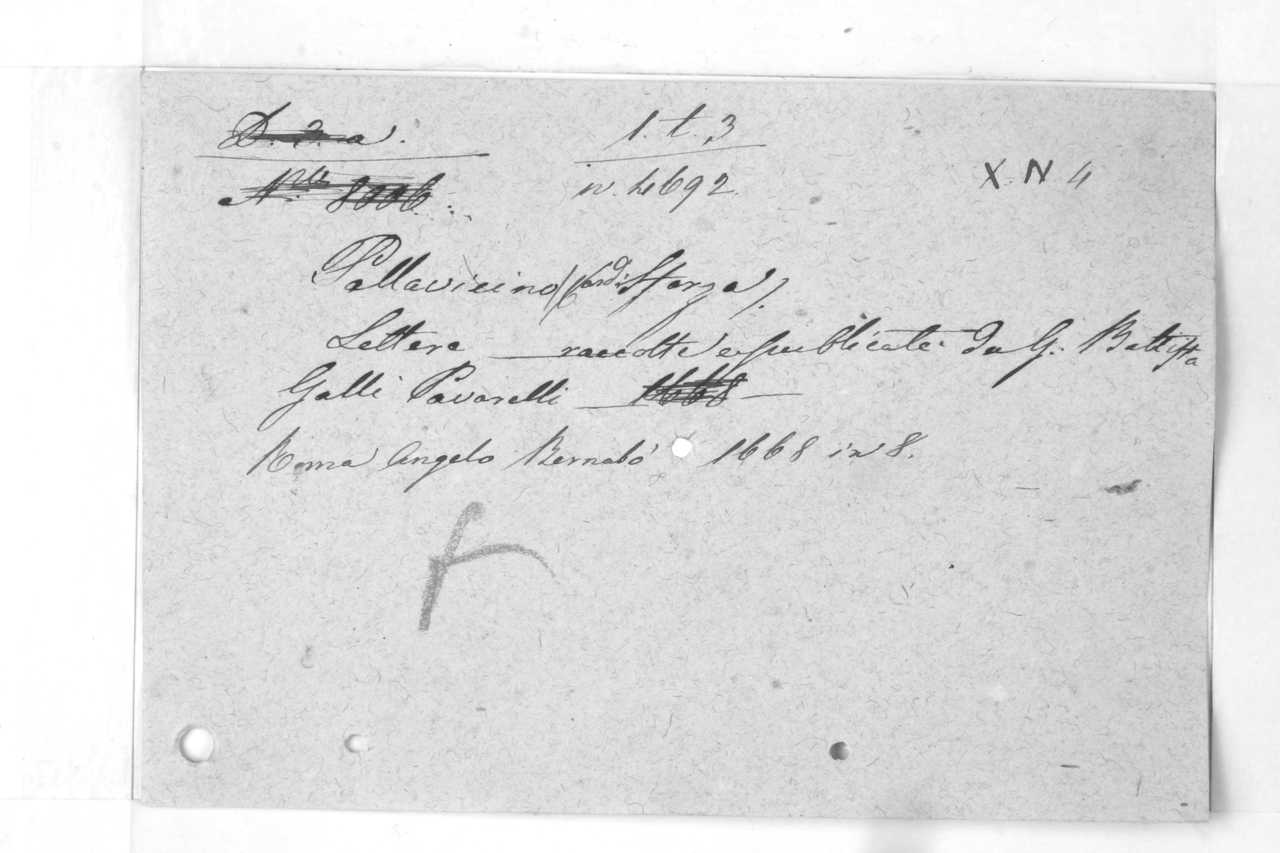 D. 2. a.
1. t. 3
X. N 4
N.ro 8006.
n. 4692.
Pallavicino (Card. Sforza).
Lettere — raccolte e publicate da G. Battista
Galli Pavarelli — 1668 —
Roma Angelo Bernabó 1668 in 8.